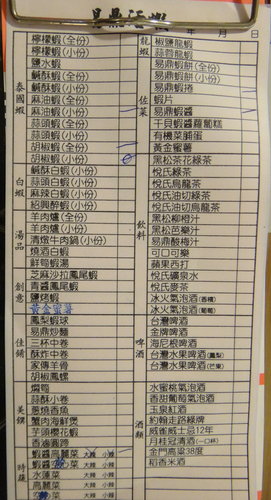 易鼎活蝦
年 月 日
泰國蝦
檸檬蝦(全份)
檸檬蝦(小份)
鹽水蝦
鹹酥蝦(全份)
鹹酥蝦(小份)
麻油蝦(全份)
麻油蝦(小份)
蒜頭蝦(全份)
蒜頭蝦(小份)
胡椒蝦(全份)
胡椒蝦(小份)
白蝦
鹹酥白蝦(小份)
蒜頭白蝦(小份)
麻辣白蝦(小份)
紹興醉蝦(小份)
湯品
羊肉爐(全份)
羊肉爐(小份)
清燉牛肉鍋(小份)
燒酒白蝦
鮮筍蝦湯
創意
芝麻沙拉鳳尾蝦
青醬鳳尾蝦
鹽烤蝦
黃金蜜薯
佳餚
鳳梨蝦球
三杯中卷
酥炸中卷
家傳羊骨
胡椒鳳螺
美饌
燜筍
蒜酥小卷
蔥燒香魚
蟹肉海鮮煲
芋頭櫻花蝦
香滷圓蹄
時蔬
蝦醬高麗菜 大辣 小辣
水蓮菜 大辣 小辣
高麗菜 大辣 小辣
龍蝦
椒鹽龍蝦
蒜蓉龍蝦
佐菜
易鼎蝦餅(全份)
易鼎蝦餅(小份)
易鼎蝦捲
蝦片
易鼎蝦醬
干貝蝦醬蘿蔔糕
有機菜脯蛋
黃金蜜薯
飲料
黑松茶花綠茶
悅氏綠茶
悅氏烏龍茶
悅氏油切綠茶
悅氏油切烏龍茶
黑松柳橙汁
黑松芭樂汁
易鼎酸梅汁
可口可樂
蘋果西打
悅氏礦泉水
悅氏麥茶
啤酒
冰火氣泡酒(香檳)
冰火氣泡酒(葡萄)
台灣啤酒
金牌啤酒
海尼根啤酒
台灣水果啤酒(鳳梨)
台灣水果啤酒(芒果)
酒類
水蜜桃氣泡酒
香甜葡萄氣泡酒
玉泉紅酒
約翰走路綠牌
威雀威士忌12年
月桂冠清酒(一口杯)
金門高粱38度
稻香米酒